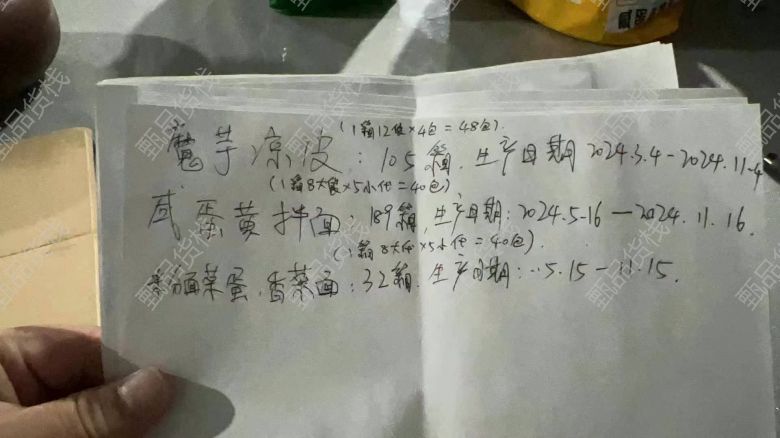 (1箱12袋×4包=48包)
魔芋凉皮:105箱.生产日期2024.3.4-2024.11.4
(1箱8大袋×5小袋=40包)
咸蛋黄拌面:189箱,生产日期:2024.5-16—2024.11.16.
(1箱8大袋×5小袋=40包).
菜蛋.香菜面:32箱.生产日期:..5.15-11.15.
甄品货栈